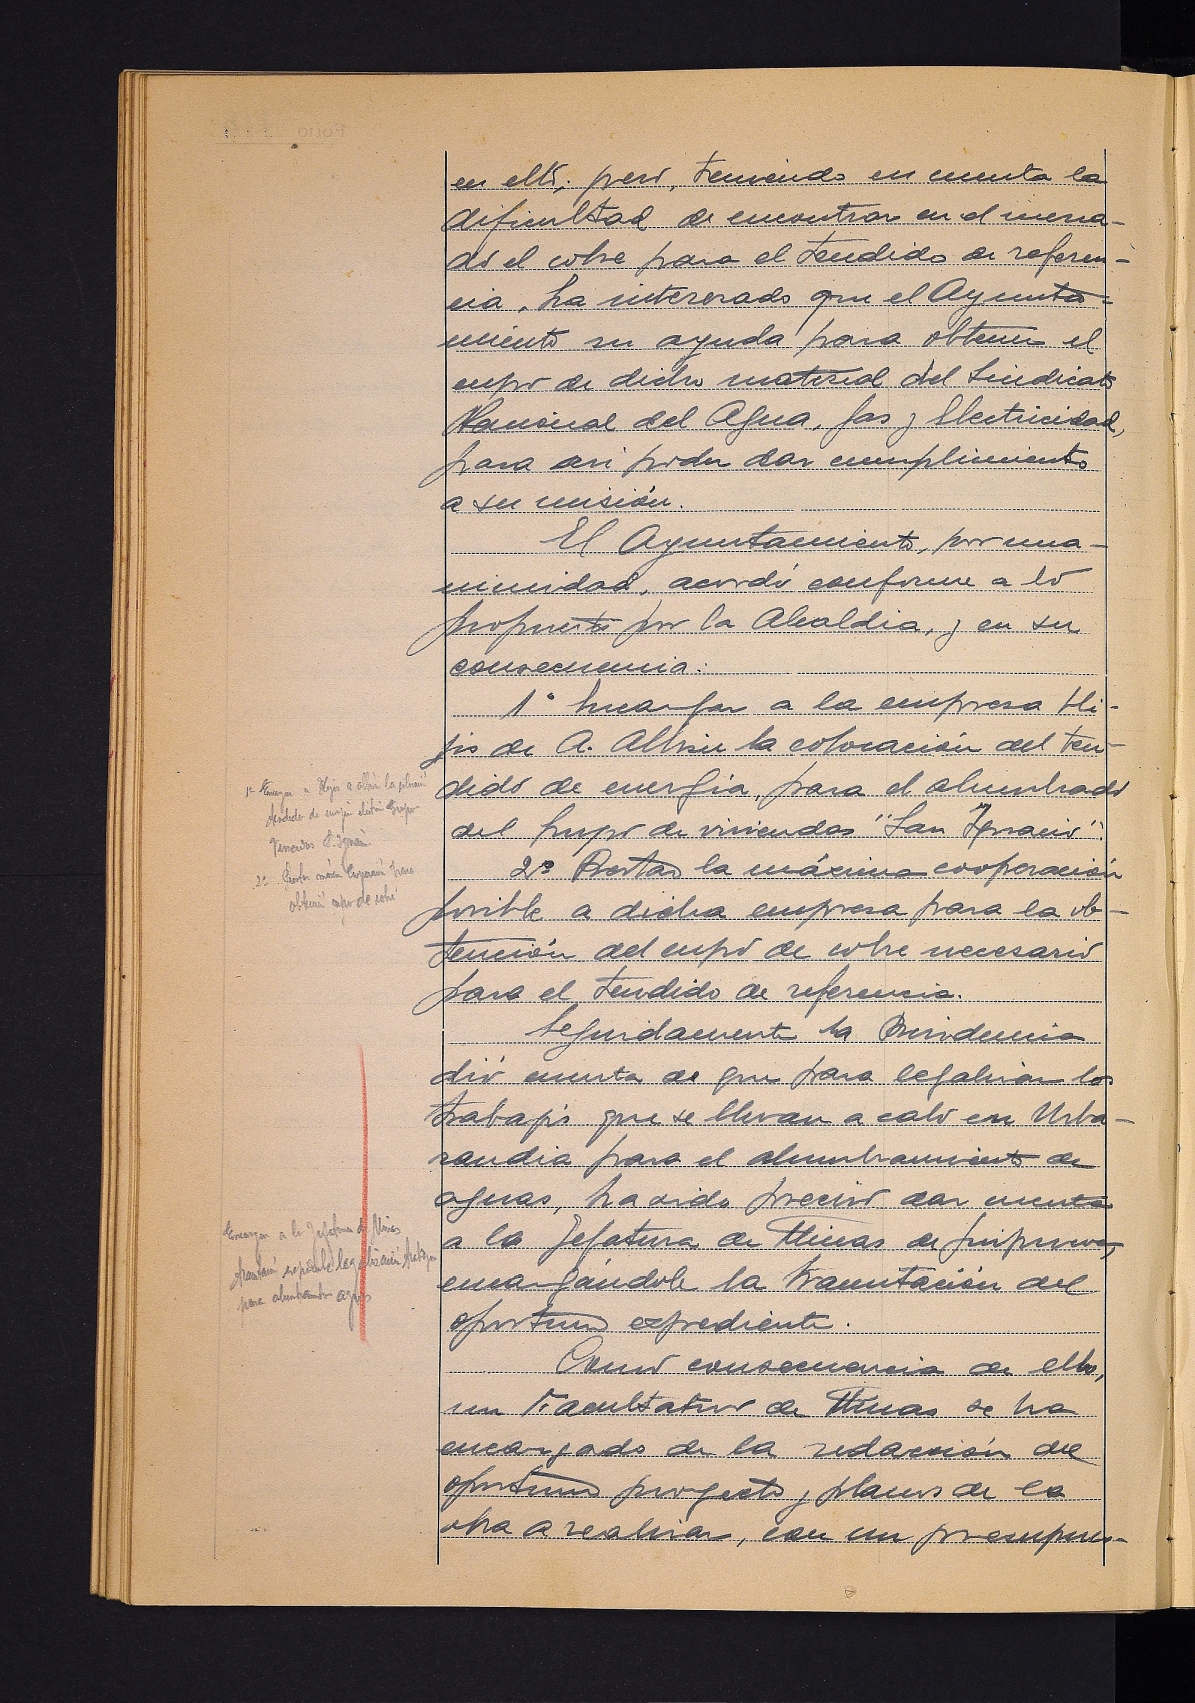 en ello; pero, teniendo en cuenta la
dificultad de encontrar en el merca-
do el cobre para el tendido de referen-
cia, ha interesado que el Ayunta-
miento su ayuda para obtener el
cupo de dicho material del Sindicato
Nacional del Agua, Gas y Electricidad,
para así poder dar cumplimiento
a su misión.
El Ayuntamiento, por una-
nimidad, acordó conforme a lo
propuesto por la Alcaldia, y en su
consecuencia:
1º Encargar a la empresa Hi-
jos de A. Albisu la colocación del ten-
dido de energía, para el alumbrado
del Grupo de viviendas "San Ignacio".
2º Prestar la máxima cooperación
posible a dicha empresa para la ob-
tención del cupo de cobre necesario
para el tendido de referencia.
Seguidamente la Presidencia
dió cuenta de que para legalizar los
trabajos que se llevan a cabo en Urba-
randia para el alumbramiento de
aguas, ha sido preciso dar cuenta
a la Jefatura de Minas de Guipuzcoa,
encargándole la tramitación del
oportuno expediente.
Como consecuencia de ello,
un Facultativo de Minas se ha
encargado de la redacción del
oportuno proyecto y planos de la
obra a realizar, con un presupues-
1º Encargar a Hijos a Albisu la
tendido de energía Grupo
Viviendas S. Ignacio
2º Prestar máxima Cooperación para
obtener cupo de cobre
Encargar a la Jefatura de Minas
tramitación expediente legalización trabajos
para alumbramto aguas
Folio